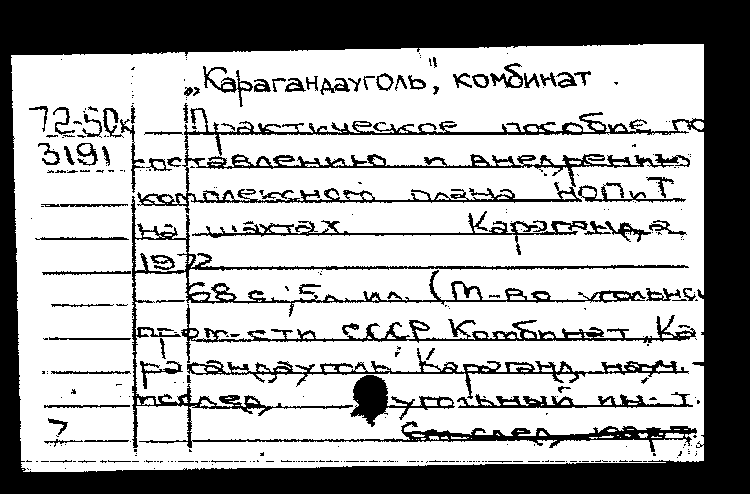 „Карагандауголь", комбинат .
72-50к Практическое пособие по
3191 составлению и внедрению
комплексного плана НОПиТ
на шахтах. Караганда
1972
68 с.; 5л. ил. (М-во угольной
пром-сти СССР Комбинат „Ка-
рагандауголь" Караганд. науч. -
исслед. угольный ин-т.
7 См след. карт.